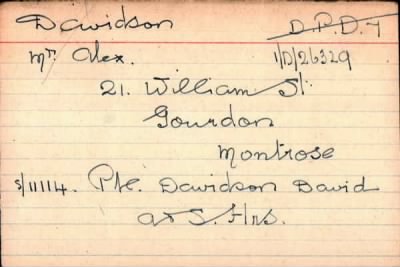 Davidson D.P.D.7
Mr. Alex. 1/D/26329
21. William St.
Gourdon
Montrose
S/11114. Pte. Davidson David
a & S. Hrs.